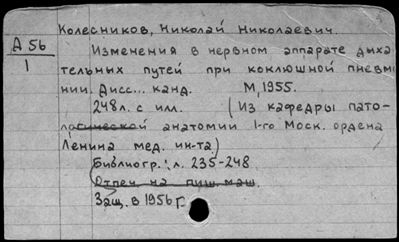 Колесников, Николай Николаевич.
А 56
1
Изменения в нервном аппарате дыха
тельных путей при коклюшной пневм
нии. Дисс... канд. М, 1955.
248л. с илл. (Из кафедры пато-
логической анатомии 1-го Моск. ордена
Ленина мед. ин-та)
Библиогр.: л. 235-248
(Отпеч. на пиш. маш.
Защ. в 1956 г.